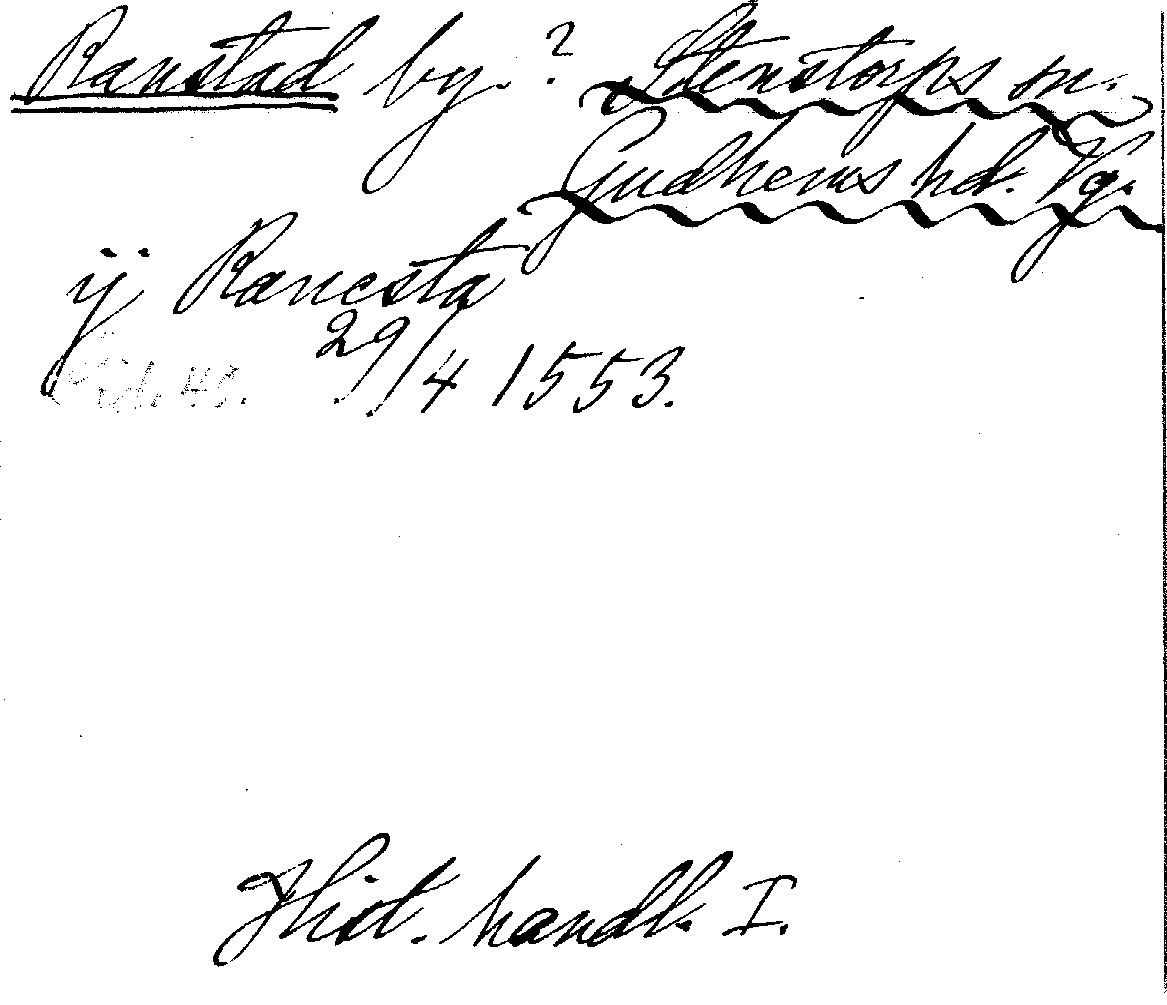 Ranstad by.? Stenstorps sn.
Gudhems hd. Vg.
ij Ranesta
29/4 1553.
Hist. handl. I.